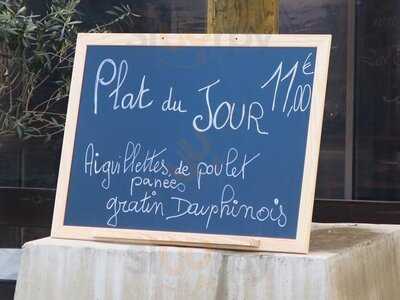 Plat du JOUR 11,00€
Aiguillettes de poulet
panées
gratin Dauphinois